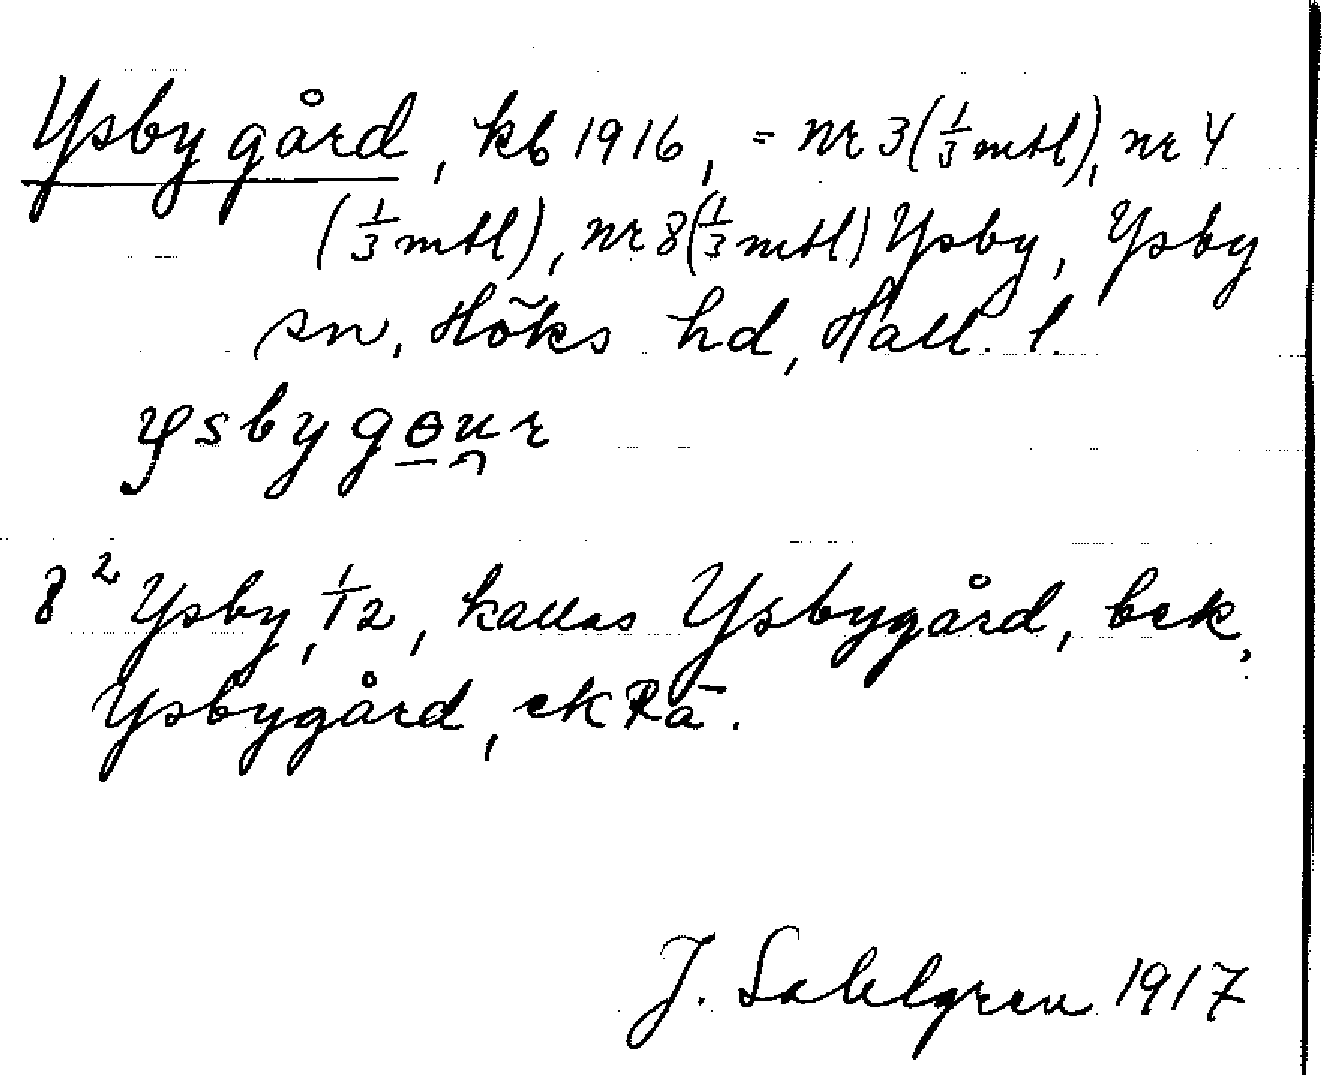 Ysby gård, kb 1916, = nr 3 (1/3 mtl), nr 4
(1/3 mtl), nr 8 (1/3 mtl) Ysby, Ysby
sn, Höks hd, Hall. l.
ysbygɵur
8² Ysby, 1/12, kallas Ysbygård, bek.
Ysbygård, ekRä.
J. Sahlgren 1917